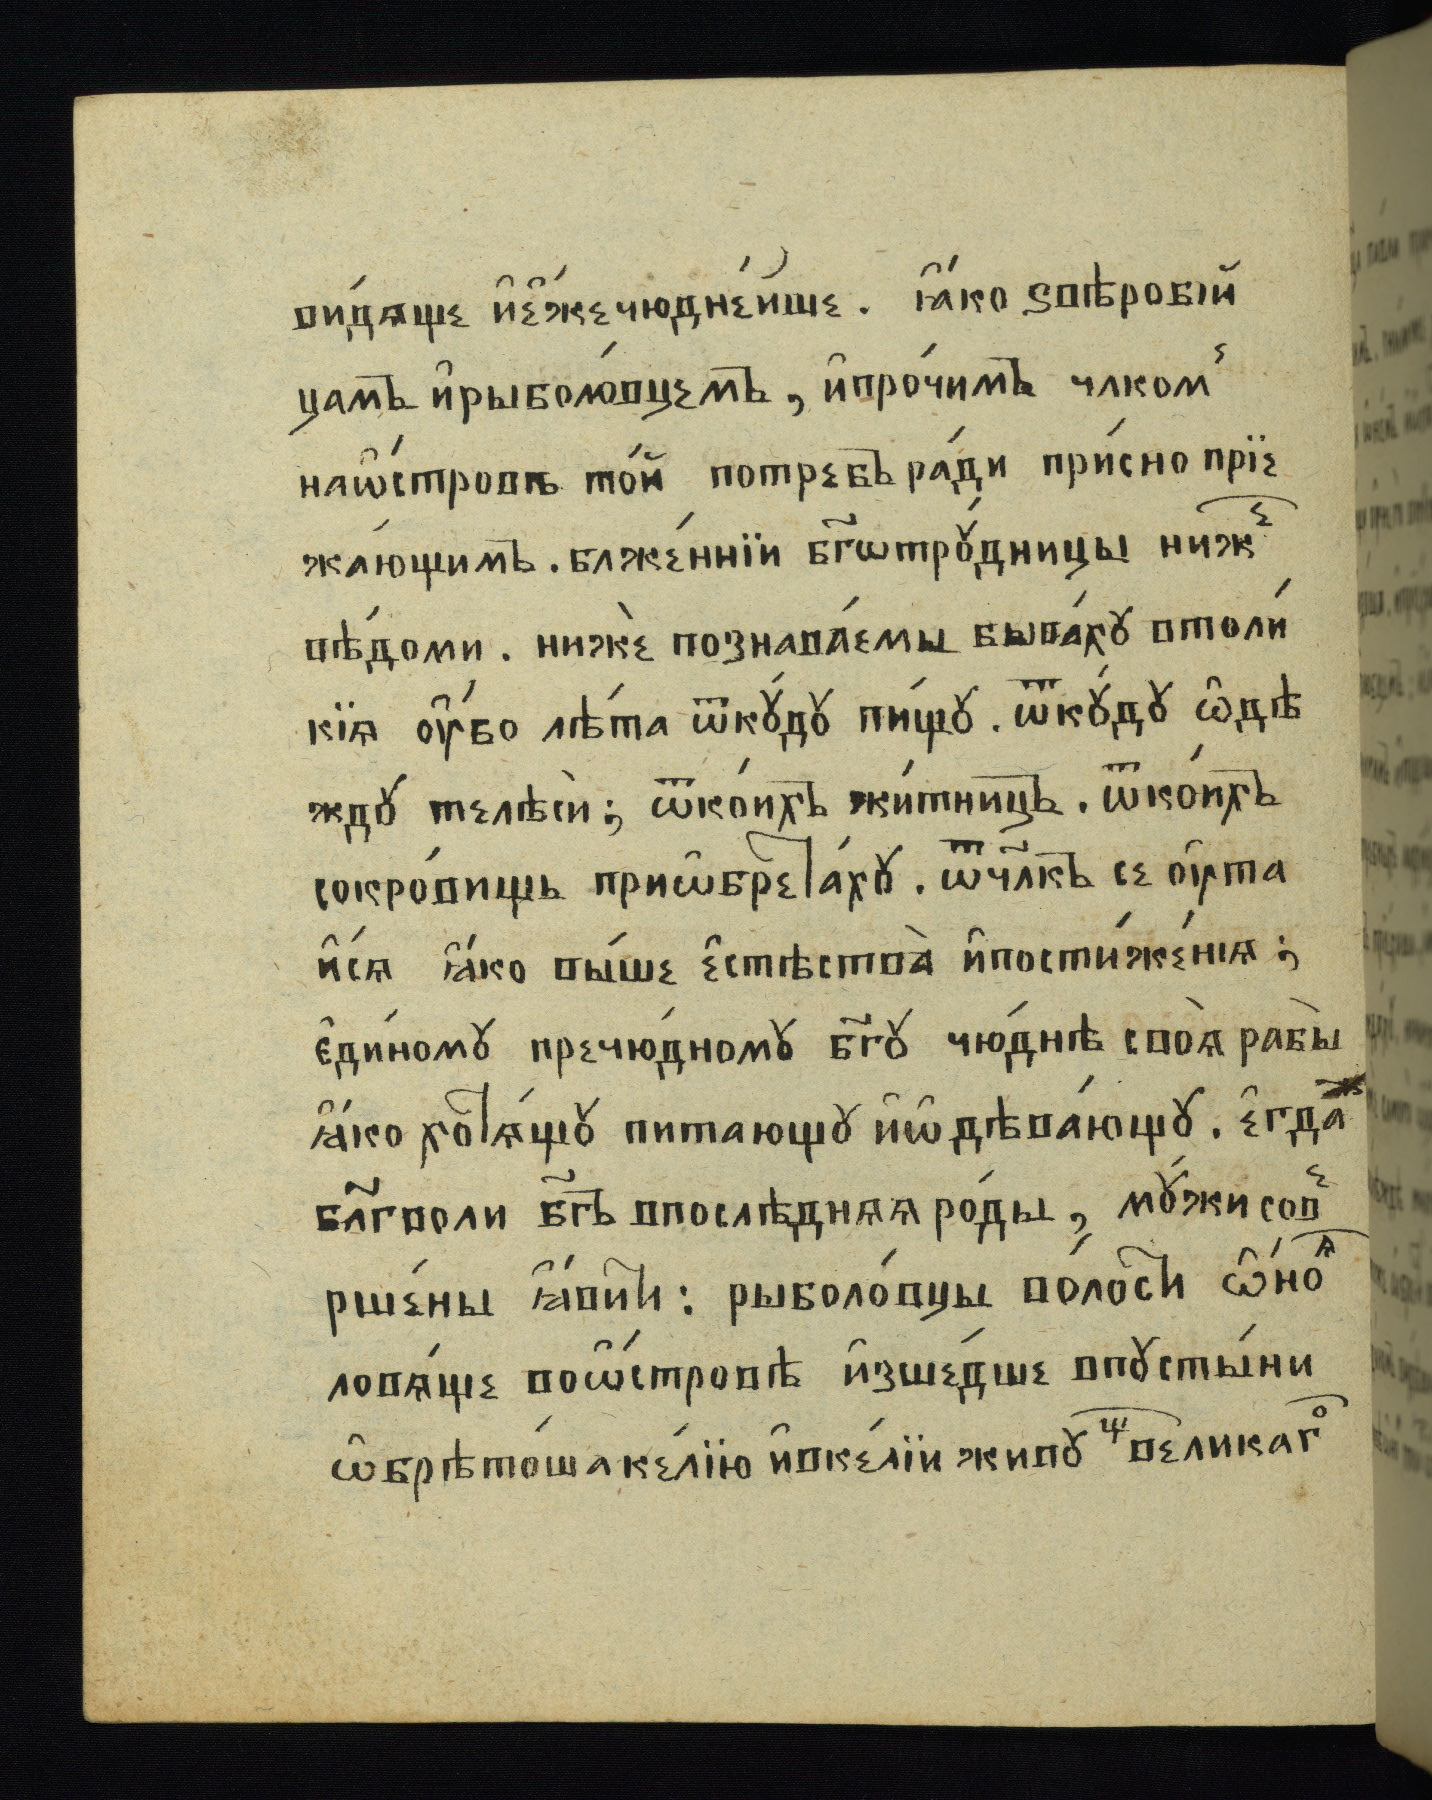 ви́дѧще и҆е҆́жечюдне́йше. ꙗ҆́ко ѕвѣробі́й
цамъ и҆рыболю́вцемъ, и҆про́чимъ члкомⷷ
наѡ҆́стровѣ то́й потребъ ра́ди при́сно прїе
жа́ющимъ. блже́ннїи бг҃ѡтрꙋ́дницы нижⷷ
вѣ́доми. нижѐ познава́емы быва́хꙋ втоли́
кїѧ ѹ҆́бо лѣ́та ѿкꙋ́дꙋ пи́щꙋ. ѿкꙋ́дꙋ ѡ҆дѣ
ждꙋ телѣсѝ; ѿко́ихъ жи́тницъ. ѿко́ихъ
сокро́вищь приѡ҆брета́хꙋ. ѿчл҃къ се ѹ҆та
и҆́сѧ ꙗ҆́ко вы́ше е҆стѣства̀ и҆пости́же́нїѧ;
є҆ди́номꙋ пречю́дномꙋ бг҃ꙋ чю́днѣ своѧ̀ рабы̀
ꙗ҆́ко хотѧ́щꙋ питающꙋ и҆ѡ҆дѣва́ющꙋ. є҆гда̀
бл҃гволи бг҃ъ впослѣдняѧ ро́ды, мꙋ́жи совⷷ
рше́ны ꙗ҆́вити: рыболо́вцы во́лости ѡ҆́ноѧ
ловѧ́ще воѡ҆́стровѣ и҆зше́дше впꙋсты́ни
ѡ҆брѣто́ша ке́лїю и҆вке́лїи живꙋщ великагⷪ